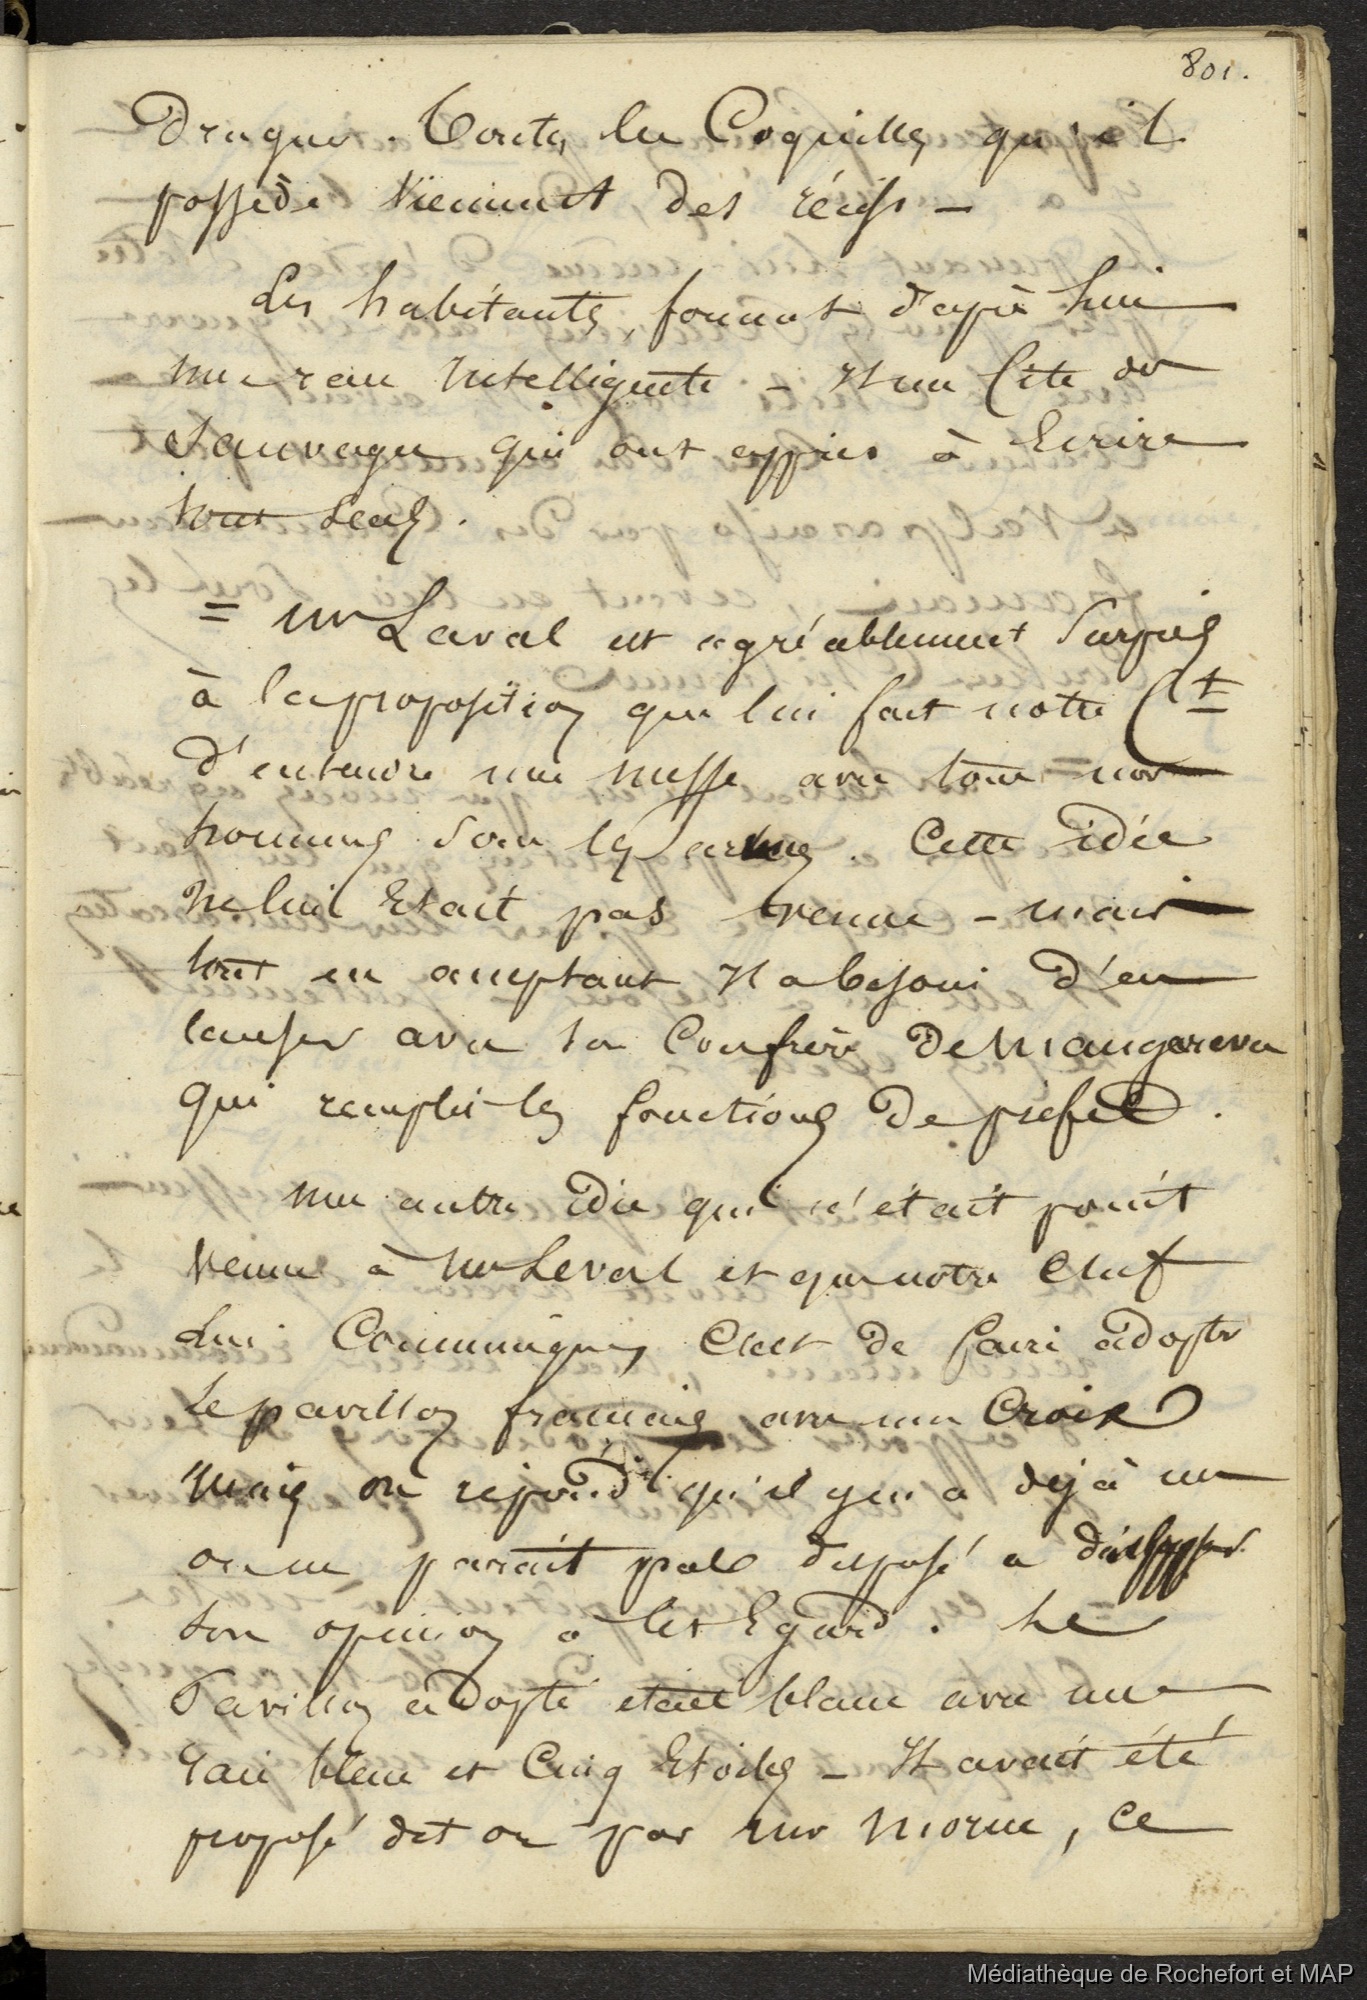 801.
Drague. Toutes les Coquilles qu'il
possède viennent des récifs –
Les habitants, forment d'après lui
une race Intelligente – Il me Cite des
Sauvages qui ont appris à Ecrire
tout seuls.
= Mr Laval est agréablement Surpris
à la proposition que lui fait notre Ct
d'entendre une messe avec tous nos
hommes sous les armes. Cette idée
ne lui Etait pas venue – mais
tout en acceptant Il a besoin d'en
causer avec son Confrère de Mangareva
qui remplit les fonctions de préfet.
Une autre idée qui n'était point
venue à Mr Laval et que notre Chef
lui Communique, C'est de faire adopter
le pavillon français avec une Croix
Mais on répond qu'il y en a déjà un
on ne paraît pas disposé a
son opinion à cet Egard. Le
Pavillon adopté était blanc avec une
raie bleue et Cinq Etoiles – Il avait été
proposé dit on par Mr , Ce
Médiathèque de Rochefort et MAP